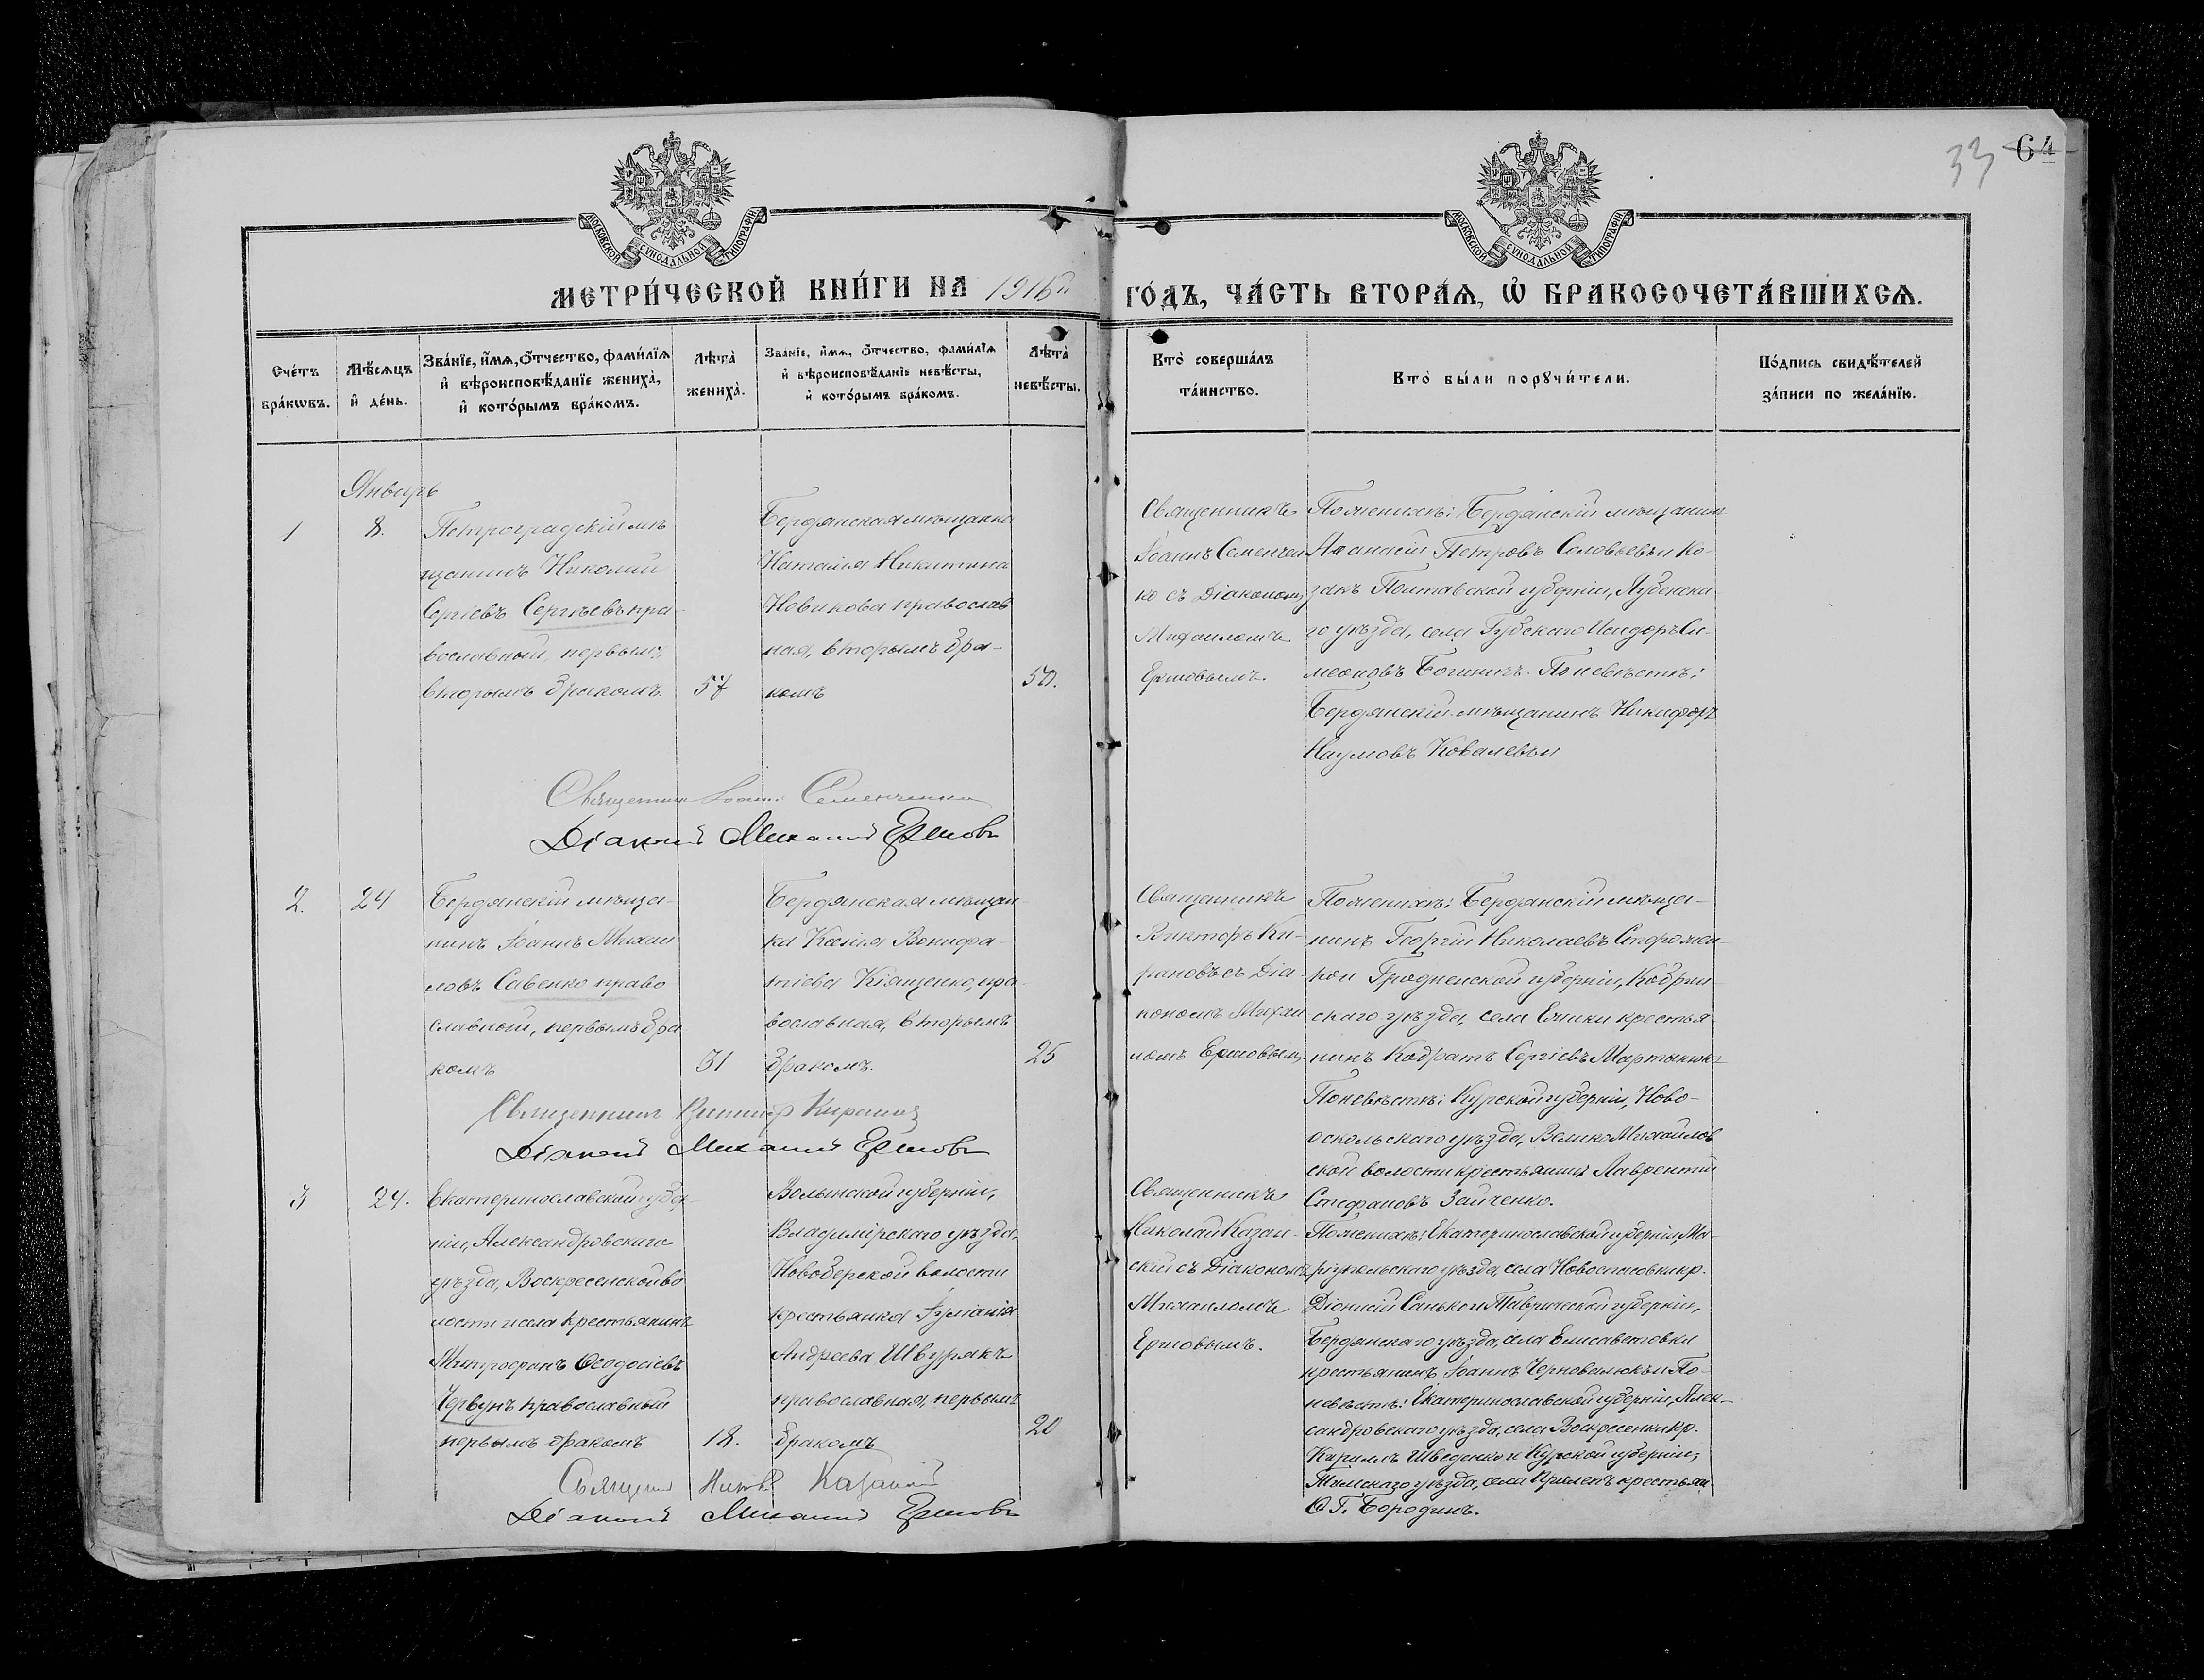 33 64
МОСКОВСКОЙ СѴНОДАЛЬНОЙ ТИПОГРАФІИ
МОСКОВСКОЙ СѴНОДАЛЬНОЙ ТИПОГРАФІИ
МЕТРИ́ЧЕСКОЙ КНИ́ГИ НА 1916й ГО́ДЪ, ЧА́СТЬ ВТОРА́Ѧ, Ѡ҆ БРАКОСОЧЕТА́ВШИХСѦ.
Сче́тъ
бра́кѡвъ.
Мѣ́сѧцъ
и҆ де́нь.
Зва́нїе, и҆́мѧ, ѻ҆́тчество, фами́лїѧ
и҆ вѣроисповѣ́данїе жениха̀,
и҆ кото́рымъ бра́комъ.
Лѣта̀
жениха̀.
Зва́нїе, и҆́мѧ, ѻ҆́тчество, фами́лїѧ
и҆ вѣроисповѣ́данїе невѣ́сты,
и҆ кото́рымъ бра́комъ.
Лѣта̀
невѣ́сты.
Кто̀ соверша́лъ
та́инство.
Кто̀ бы́ли порꙋчи́тели.
По́дпись свидѣ́телей
за́писи по жела́нїю.
Январь
1
8.
Петроградскій мѣ
щанинъ Николай
Сергіевъ Сергѣевъ пра-
вославный, первымъ
вторымъ бракомъ.
57
Бердянская мѣщанка
Наталія Никитина
Новикова православ
ная, вторымъ бра-
комъ
50.
Священникъ
Іоаннъ Семенчен
ко съ Діакономъ
Михаиломъ
Ершовымъ.
По женихѣ: Бердянскій мѣщанинъ
Аѳанасій Петровъ Соловьевъ и ко-
закъ Полтавской губерніи, Лубенска
го уѣзда, села Губскаго Исидоръ Си-
меоновъ Богинкъ. По невѣстѣ:
Бердянскій мѣщанинъ Никифоръ
Наумовъ Ковалевъ и
Священник Іоанн Семенченко
Діаконъ Михаилъ Ершовъ
2.
24
Бердянскій мѣща-
нинъ Іоаннъ Михаи
ловъ Савенко право
славный, первымъ бра
комъ
31
Бердянская мѣщан
ка Ксенія Вонифа-
тіева Кіященко, пра-
вославная, вторымъ
бракомъ.
25
Священникъ
Викторъ Ки-
рановъ съ Діа-
кономъ Михаи
ломъ Ершовымъ
По женихѣ: Бердянскій мѣща-
нинъ Георгій Николаевъ Сторожен-
ко и Гродненской губерніи, Кобрин
скаго уѣзда, села крестья
нинъ Кодратъ Сергіевъ Мартынюкъ
По невѣстѣ: Курской губерніи, Ново-
оскольскаго уѣзда, Велико Михайлов
ской волости крестьянинъ Лаврентій
Стефановъ Зайченко.
Священникъ Викторъ Кирановъ
Діаконъ Михаилъ Ершовъ
3
24.
Екатеринославской губер-
ніи, Александровскаго
уѣзда, Воскресенской во
лости и села крестьянинъ
Митрофанъ Ѳеодосіевъ
Червунъ православный
первымъ бракомъ
18.
Волынской губерніи,
Владимірскаго уѣзда,
Новоберской волости
крестьянка Іуліанія
Андреева Швурякъ
православная, первымъ
бракомъ
20
Священникъ
Николай Казан-
скій съ Діакономъ
Михаиломъ
Ершовымъ.
По женихѣ: Екатеринославской губерніи, Ма-
ріупольскаго уѣзда, села Новоспасовки кр.
Діонисій Санько и Таврической губерніи,
Бердянскаго уѣзда, села Елисаветовки
крестьянинъ Іоаннъ Черноволюкъ и По-
невѣстѣ: Екатеринославской губерніи, Алек-
сандровскаго уѣзда, села Воскресенки кр.
Кириллъ Шведенко и Курской губерніи,
Тимскаго уѣзда, села крестьян
Ѳ. Г. Бородинъ.
Священн Никол Казанскій
Діаконъ Михаилъ Ершовъ